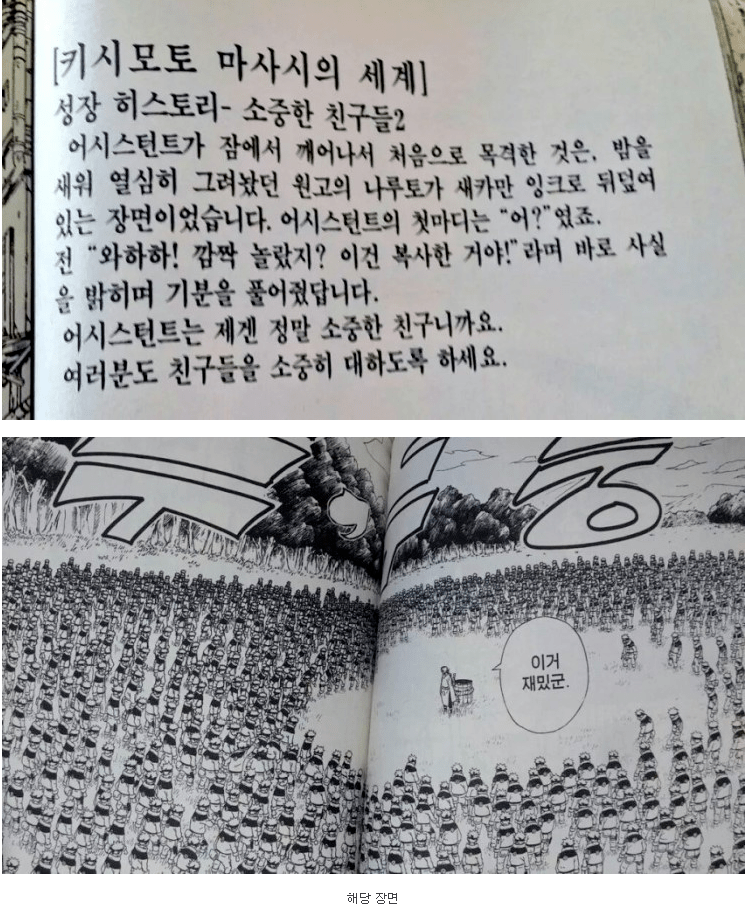 [키시모토 마사시의 세계]
성장 히스토리- 소중한 친구들2
어시스턴트가 잠에서 깨어나서 처음으로 목격한 것은, 밤을
새워 열심히 그려놨던 원고의 나루토가 새카만 잉크로 뒤덮여
있는 장면이었습니다. 어시스턴트의 첫마디는 “어?”였죠.
전 “와하하! 깜짝 놀랐지? 이건 복사한 거야!”라며 바로 사실
을 밝히며 기분을 풀어줬답니다.
어시스턴트는 제겐 정말 소중한 친구니까요.
여러분도 친구들을 소중히 대하도록 하세요.
이거
재밌군.
해당 장면